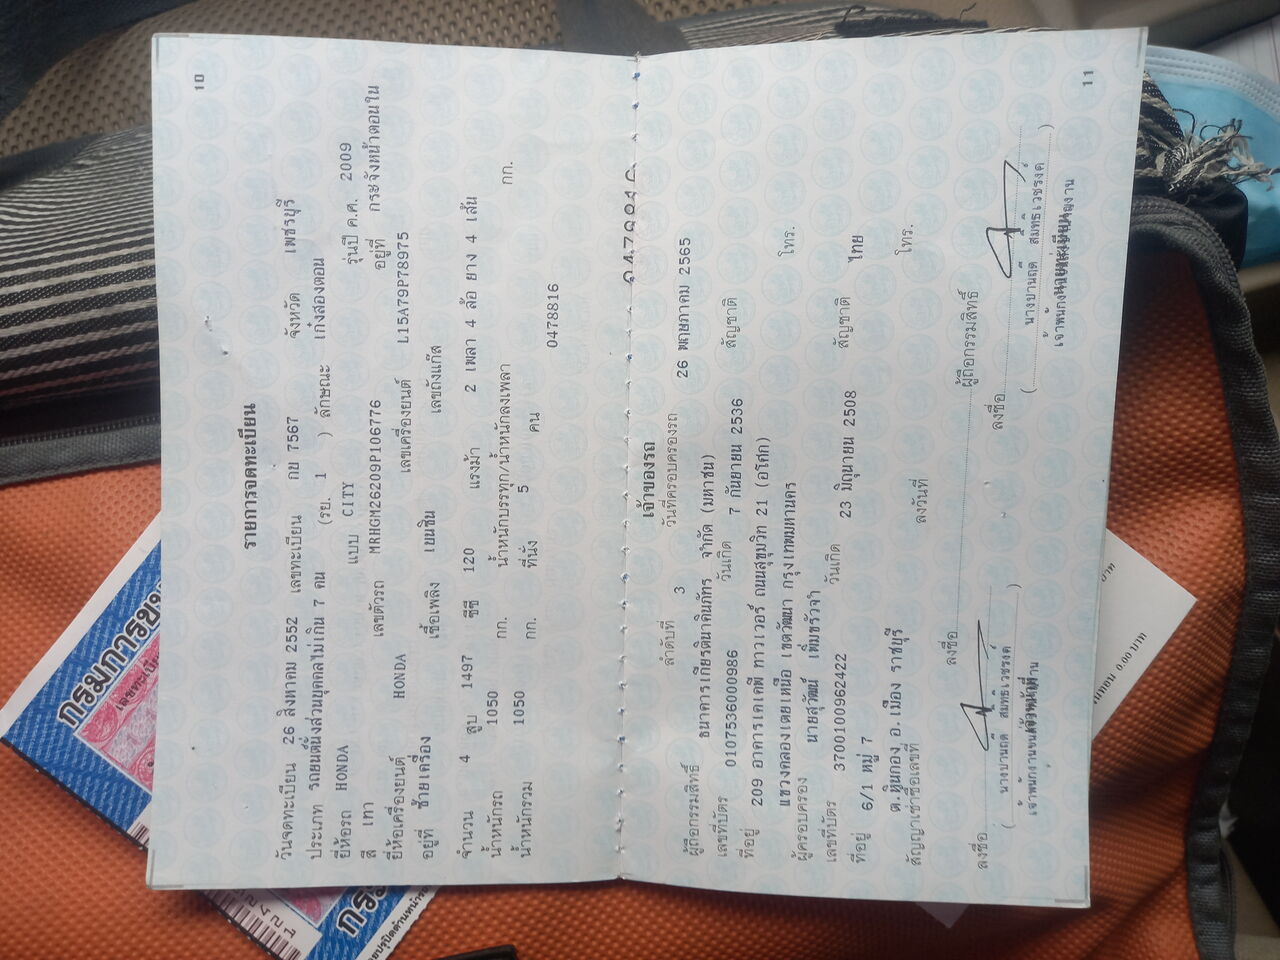 10
รายการจดทะเบียน
วันจดทะเบียน 26 สิงหาคม 2552 เลขทะเบียน กย 7567 จังหวัด เพชรบุรี
ประเภท รถยนต์นั่งส่วนบุคคลไม่เกิน 7 คน (รย. 1 ) ลักษณะ เก๋งสองตอน
ยี่ห้อรถ HONDA แบบ CITY รุ่นปี ค.ศ. 2009
สี เทา เลขตัวรถ MRHGM26209P106776 อยู่ที่ กระจังหน้าตอนใน
ยี่ห้อเครื่องยนต์ HONDA เลขเครื่องยนต์ L15A79P78975
อยู่ที่ ซ้ายเครื่อง เชื้อเพลิง เบนซิน เลขถังแก๊ส
จำนวน 4 สูบ 1497 ซีซี 120 แรงม้า 2 เพลา 4 ล้อ ยาง 4 เส้น
น้ำหนักรถ 1050 กก. น้ำหนักบรรทุก/น้ำหนักลงเพลา กก.
น้ำหนักรวม 1050 กก. ที่นั่ง 5 คน
0478816
เจ้าของรถ
ลำดับที่ 3 วันที่ครอบครองรถ 26 พฤษภาคม 2565
ผู้ถือกรรมสิทธิ์ ธนาคารเกียรตินาคินภัทร จำกัด (มหาชน)
เลขที่บัตร 0107536000986 วันเกิด 7 กันยายน 2536 สัญชาติ
ที่อยู่ 209 อาคารเคเคพี ทาวเวอร์ ถนนสุขุมวิท 21 (อโศก)
แขวงคลองเตยเหนือ เขตวัฒนา กรุงเทพมหานคร โทร.
ผู้ครอบครอง นายสุวัฒน์ เพิ่มขรัวจำ
เลขที่บัตร 3700100962422 วันเกิด 23 มิถุนายน 2508 สัญชาติ ไทย
ที่อยู่ 6/1 หมู่ 7
ต.หินกอง อ.เมือง ราชบุรี โทร.
สัญญาเช่าซื้อเลขที่ ลงวันที่
ลงชื่อ ผู้ถือกรรมสิทธิ์
ลงชื่อ ลงชื่อ
( นางปานฤดี สมิทธิเวชรงค์ ) ( นางปานฤดี สมิทธิเวชรงค์ )
นายทะเบียน
11
กรมการขน
เลขทะเบีย
0.00 บาท